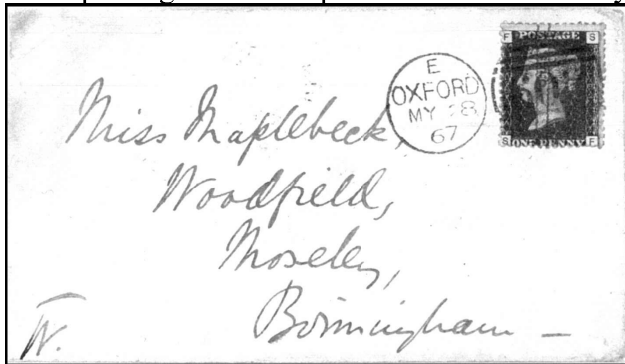 E
OXFORD
MY 28
67
F POSTAGE S
S ONE PENNY F
Miss Maplebeck,
Woodfield,
Moseley,
Birmingham –